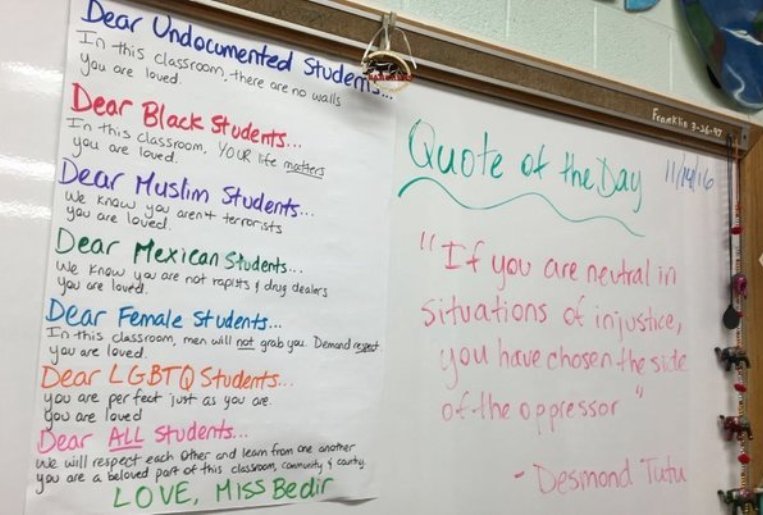 Dear Undocumented Students...
In this classroom, there are no walls
You are loved.
Dear Black Students...
In this classroom, YOUR life matters
you are loved.
Dear Muslim Students...
We know you aren't terrorists
you are loved.
Dear Mexican Students...
We know you are not rapists & drug dealers
You are loved.
Dear Female Students...
In this classroom, men will not grab you. Demand respect
You are loved.
Dear LGBTQ Students...
you are perfect just as you are.
You are loved
Dear ALL students...
We will respect each other and learn from one another
you are a beloved part of this classroom, community & country
LOVE, MISS Bedir
Franklin 3-26-97
Quote of the Day
11/14/16
"If you are neutral in
situations of injustice,
you have chosen the side
of the oppressor"
- Desmond Tutu